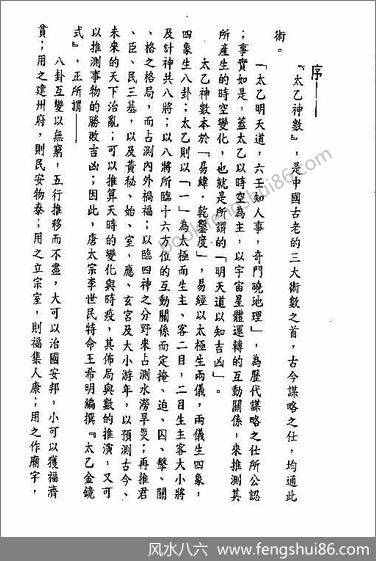 序——
『太乙神數』，是中國古老的三大術數之首，古今謀略之仕，均通此
術。
「太乙明天道，六壬知人事，奇門曉地理」，為歷代謀略之仕所公認
；事實如是，蓋太乙以時空為主，以宇宙星體運轉的互動關係，來推測其
所產生的時空變化，也就是所謂的「明天道以知吉凶」。
太乙神數本於「易緯·乾鑿度」，易經以太極生兩儀，兩儀生四象，
四象生八卦；太乙則以「一」為太極而生主、客二目，二目生主客大小將
及計神共八將；以八將所臨十六方位的互動關係而定掩、迫、囚、擊、關
、格之格局，而占測內外禍福；以臨四神之分野來占測水澇旱災；再推君
、臣、民三基，以及黃秘、始、室、應、玄宮及大小游年，以預測古今、
未來的天下治亂；可以推算天時的變化與時疫，其佈局與數的推演，又可
以推測事物的勝敗吉凶；因此，唐太宗李世民特命王希明編撰『太乙金鏡
式』，正所謂——
八卦互變以無窮，五行推移而不盡，大可以治國安邦，小可以獲福濟
貧；用之建州府，則民安物泰；用之立宗室，則福集人康；用之作廟宇，
book.fengshui86.com
风水八六——www.fengshui86.com